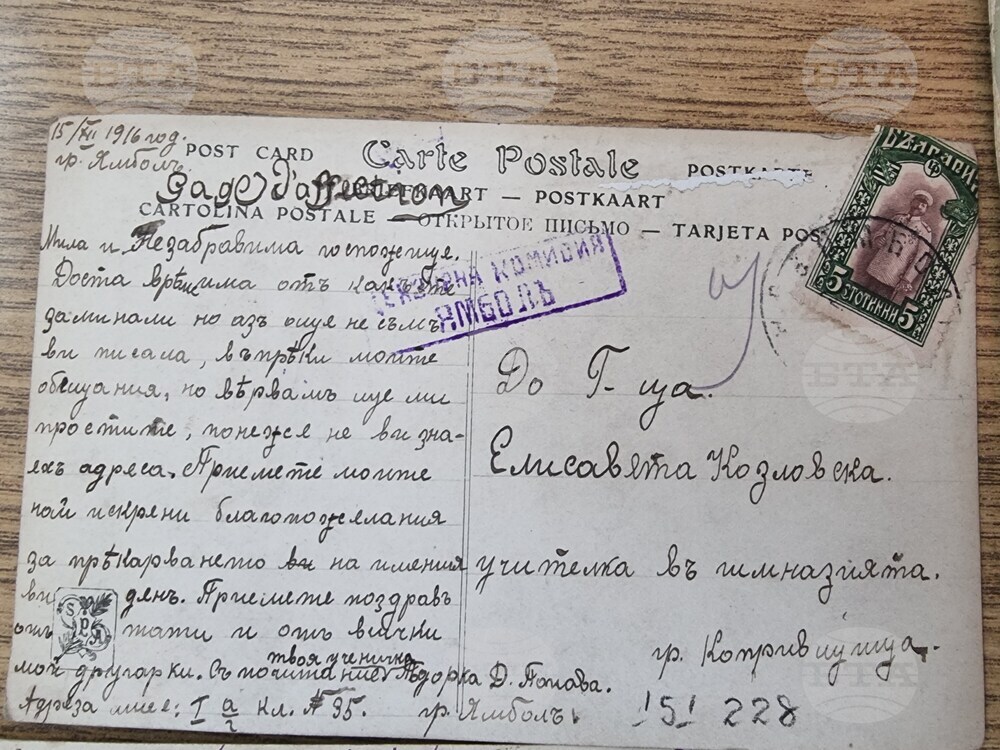 15/XII 1916 год.
гр. Ямболъ
POST CARD Carte Postale POSTKARTE
Gage d'affection
BRIEFKAART — POSTKAART
CARTOLINA POSTALE — ОТКРЫТОЕ ПИСЬМО — TARJETA POS
Мила и Незабравима госпожице.
Доста врѣме има отъ какъ сте
заминали но азъ още не съмъ
ви писала, въпрѣки моите
обещания, но вѣрвамъ ще ми
простите, понеже не ви зна-
яхъ адреса. Приемете моите
най искрени благопожелания
за прѣкарването ви на имения
ви день. Приемете поздравъ
отъ тати и отъ всички
мой другарки. Съ почитание
твоя ученичка
Тодорка Д. Попова.
Адреза ми е: I а/2 кл. № 35. гр. Ямболъ.
SPA
КОМИСИЯ
ЯМБОЛЪ
БЪЛГАРИЯ
5 СТОТИНКИ 5
До Г-ца.
Елисавята Козловска.
учителка въ гимназията.
гр. Копривщица.
151 228
БТА
БТА
БТА
БТА
БТА
БТА